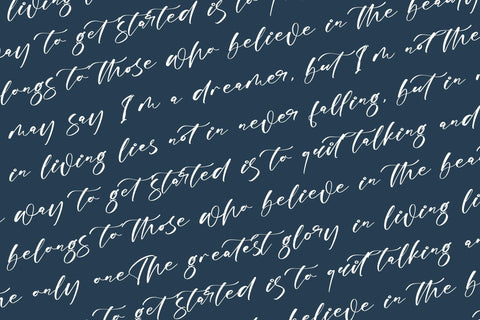 living
way to get started is to qu
elongs to those who believe in the beauty
may say I'm a dreamer, but I'm not the
in living lies not in never falling, but in
way to get started is to quit talking and
belongs to those who believe in the bea
he only one The greatest glory in living li
to get started is to quit talking an
who believe in the